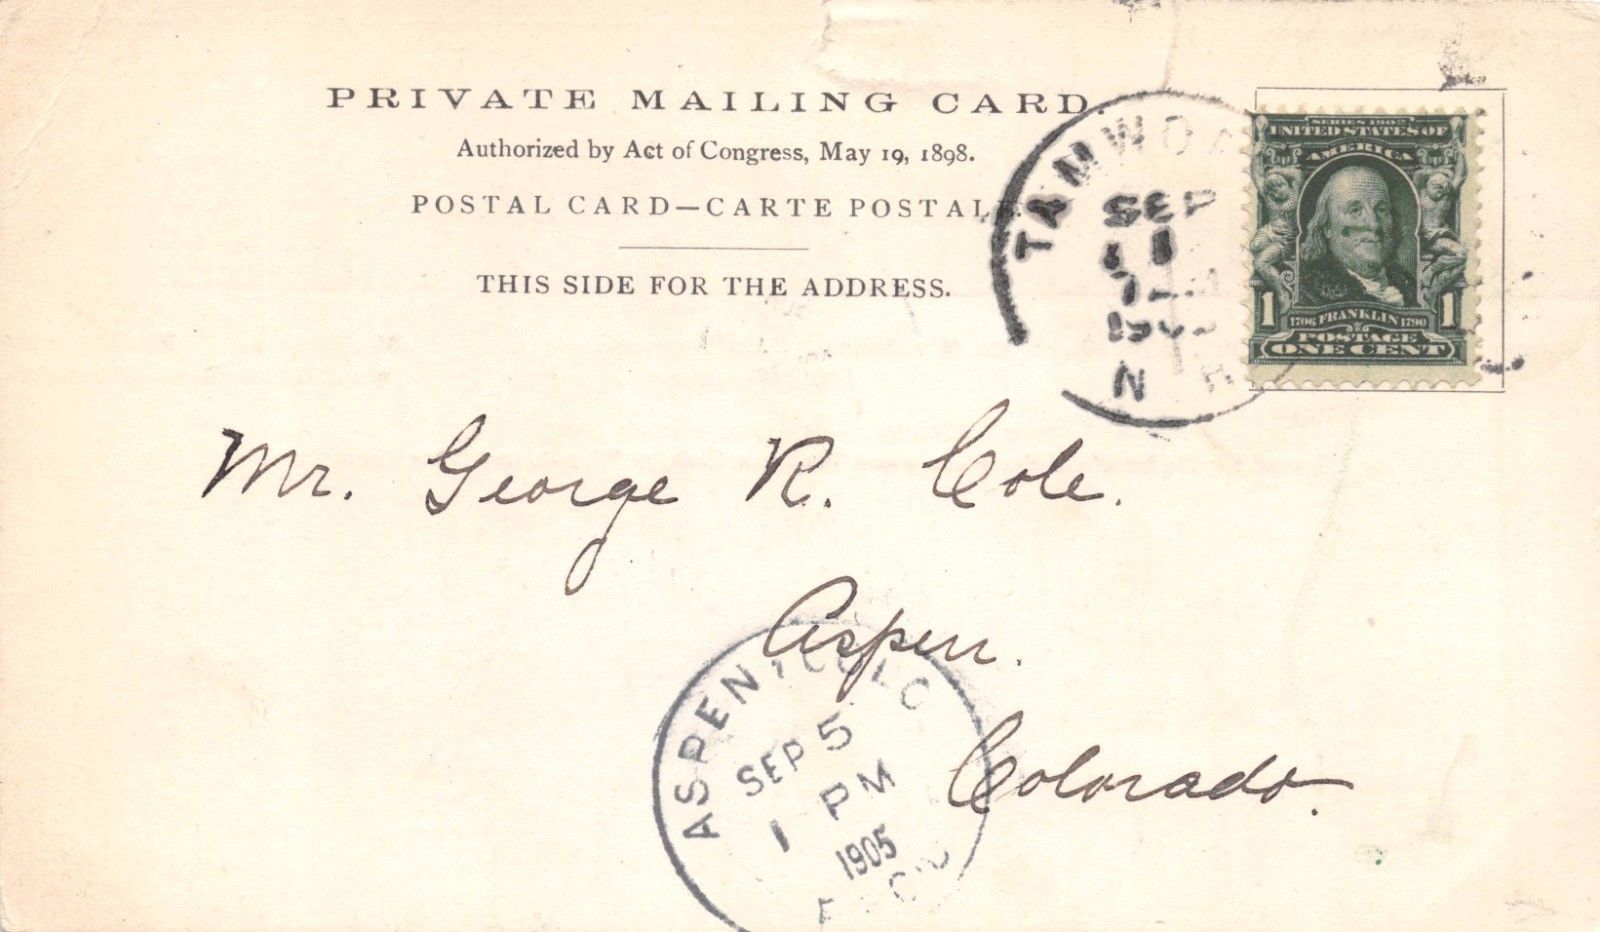 PRIVATE MAILING CARD.
Authorized by Act of Congress, May 19, 1898.
POSTAL CARD—CARTE POSTALE.
THIS SIDE FOR THE ADDRESS.
TAMWO
SEP
1
N H
SERIES 1902
UNITED STATES OF
AMERICA
1 1706 FRANKLIN 1790 1
POSTAGE
ONE CENT
Mr. George R. Cole.
Aspen.
Colorado.
ASPEN, COLO
SEP 5
1 PM
1905